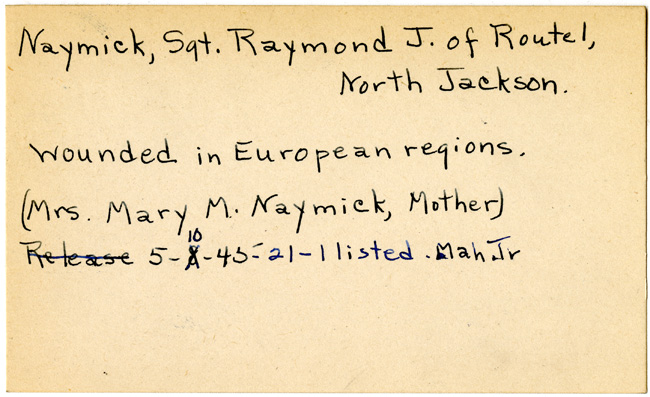 Naymick, Sgt. Raymond J. of Route 1,
North Jackson.
Wounded in European regions.
(Mrs. Mary M. Naymick, Mother)
Release 5-10-45-21-1 listed. Mah. Jr